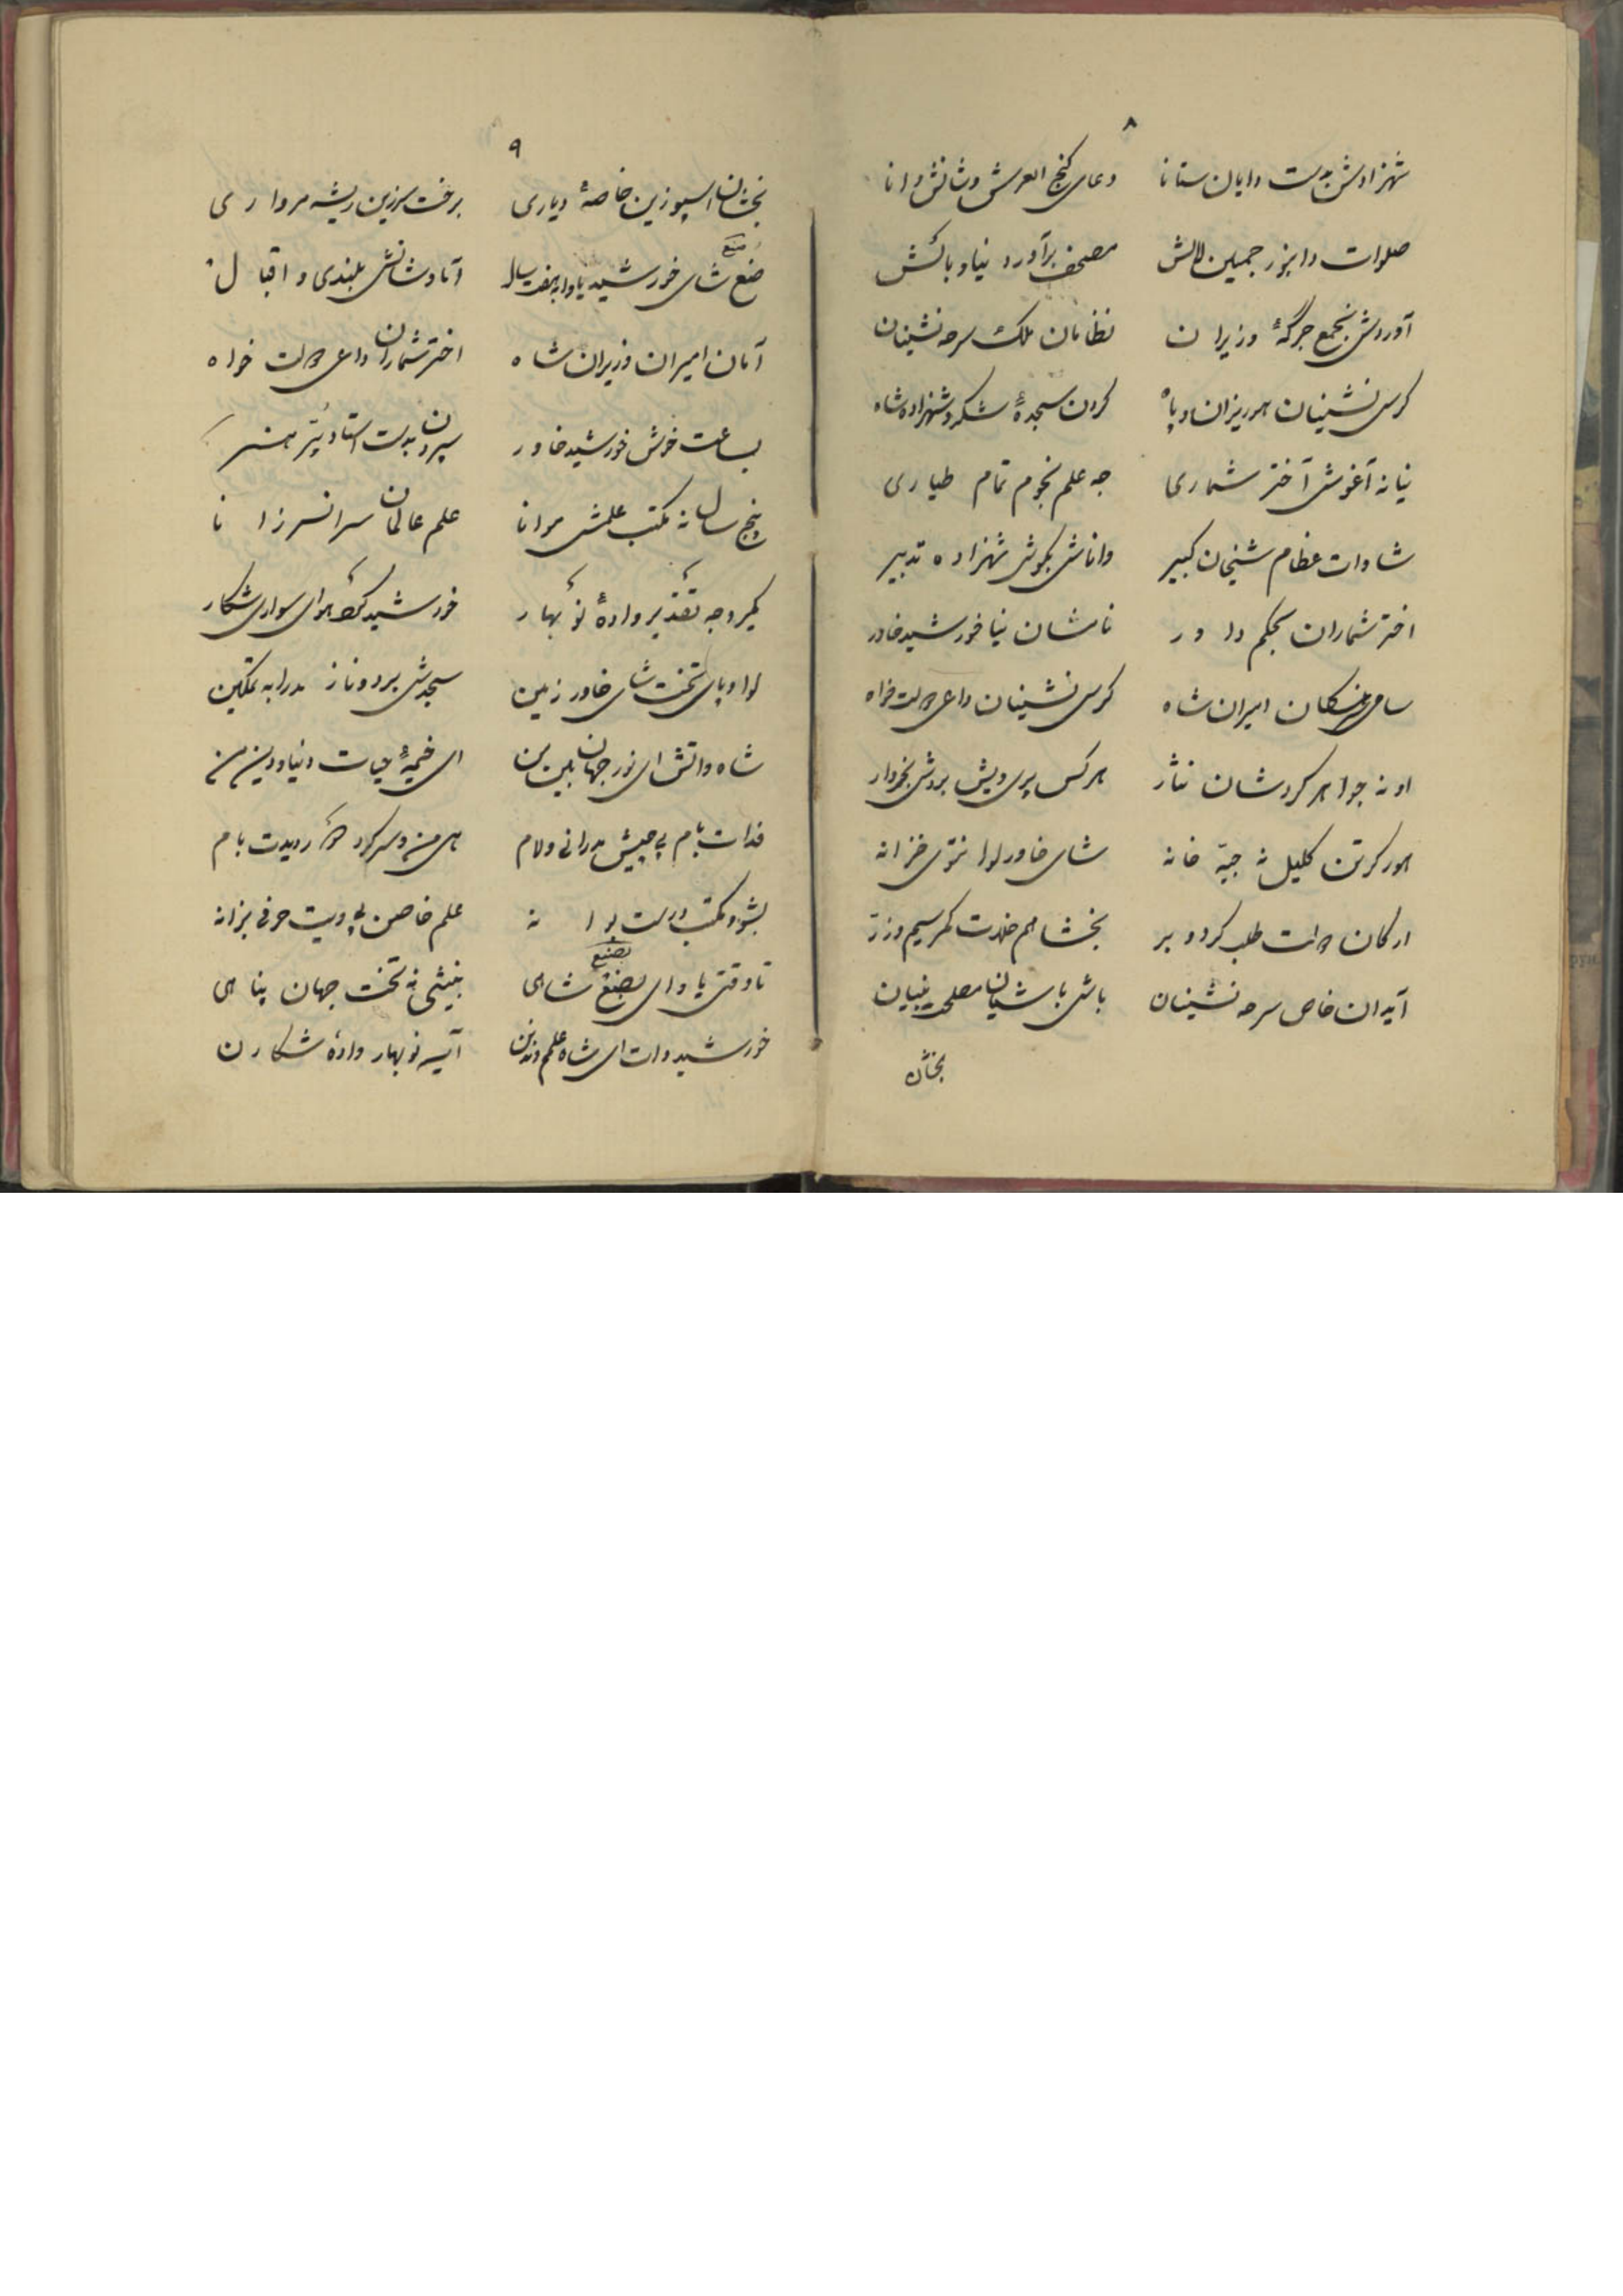 ۸
شهزادش بدست دایان ستانا دعای گنج العرش وشانش وانا
صلوات دا بنور جمین لالش مصحف برآورد نیا و بالش
آوردش بجمع جرگهٔ وزیران نظامان ملک سرحد نشینان
کرسی نشینان هوریزان او پا کردن سجدهٔ شکر و شهزاده شاه
نیا نه آغوش آختر شماری جه علم نجوم تمام طیاری
شادات عظام شیخان کبیر واناش بگوش شهزاده تدبیر
اختر شماران بحکم داور نامشان نیا خورشید خاور
امیران شاه کرسی نشینان داعی دولت خواه
او نه جواهر کردشان نثار هرکس پری ویش بردش بخروار
هور کرتن کلیل نه جبه خانه شای خاور لوا نتوی خزانه
ارکان دولت طلب کرد و بر بخشا هم خلعت کمر سیم و زر
آیدان خاص سرحد نشینان باش باشیان مصلحت بینیان
بخشان
۹
بخشان اسپو زین خاصهٔ دیاری برخت زرین ریشه مرواری
ضع شای خورشید یاوا به هفت سال آما وشانش بلندی و اقبال
آمان امیران وزیران شاه اختر شماران داعی دولت خواه
بساعت خوش خورشید خاور سپردن بدست استاد پر هنر
پنج سال نه مکتب علمش موانا علم عالمان سرانسر زانا
جه تقدیر وادهٔ نو بهار خورشید کوت هوای سواری شکار
لوا و پای تخت شای خاور زمین سجدش برد و ناز مدرا به تمکین
شاه واتش ای نور جهان بین من ای خیمهٔ حیات دنیا و دین من
فدات بام پی چیش مدرانی ولام
بشو و مکتب درست بوانه علم خاصن پی ویت حرفی بزانه
تا وقتی یاوای بضع شاهی بنیشی نه تخت جهان پناهی
خورشید وات ای شاه علمم وندین آیسه نوبهار وادهٔ شکارن